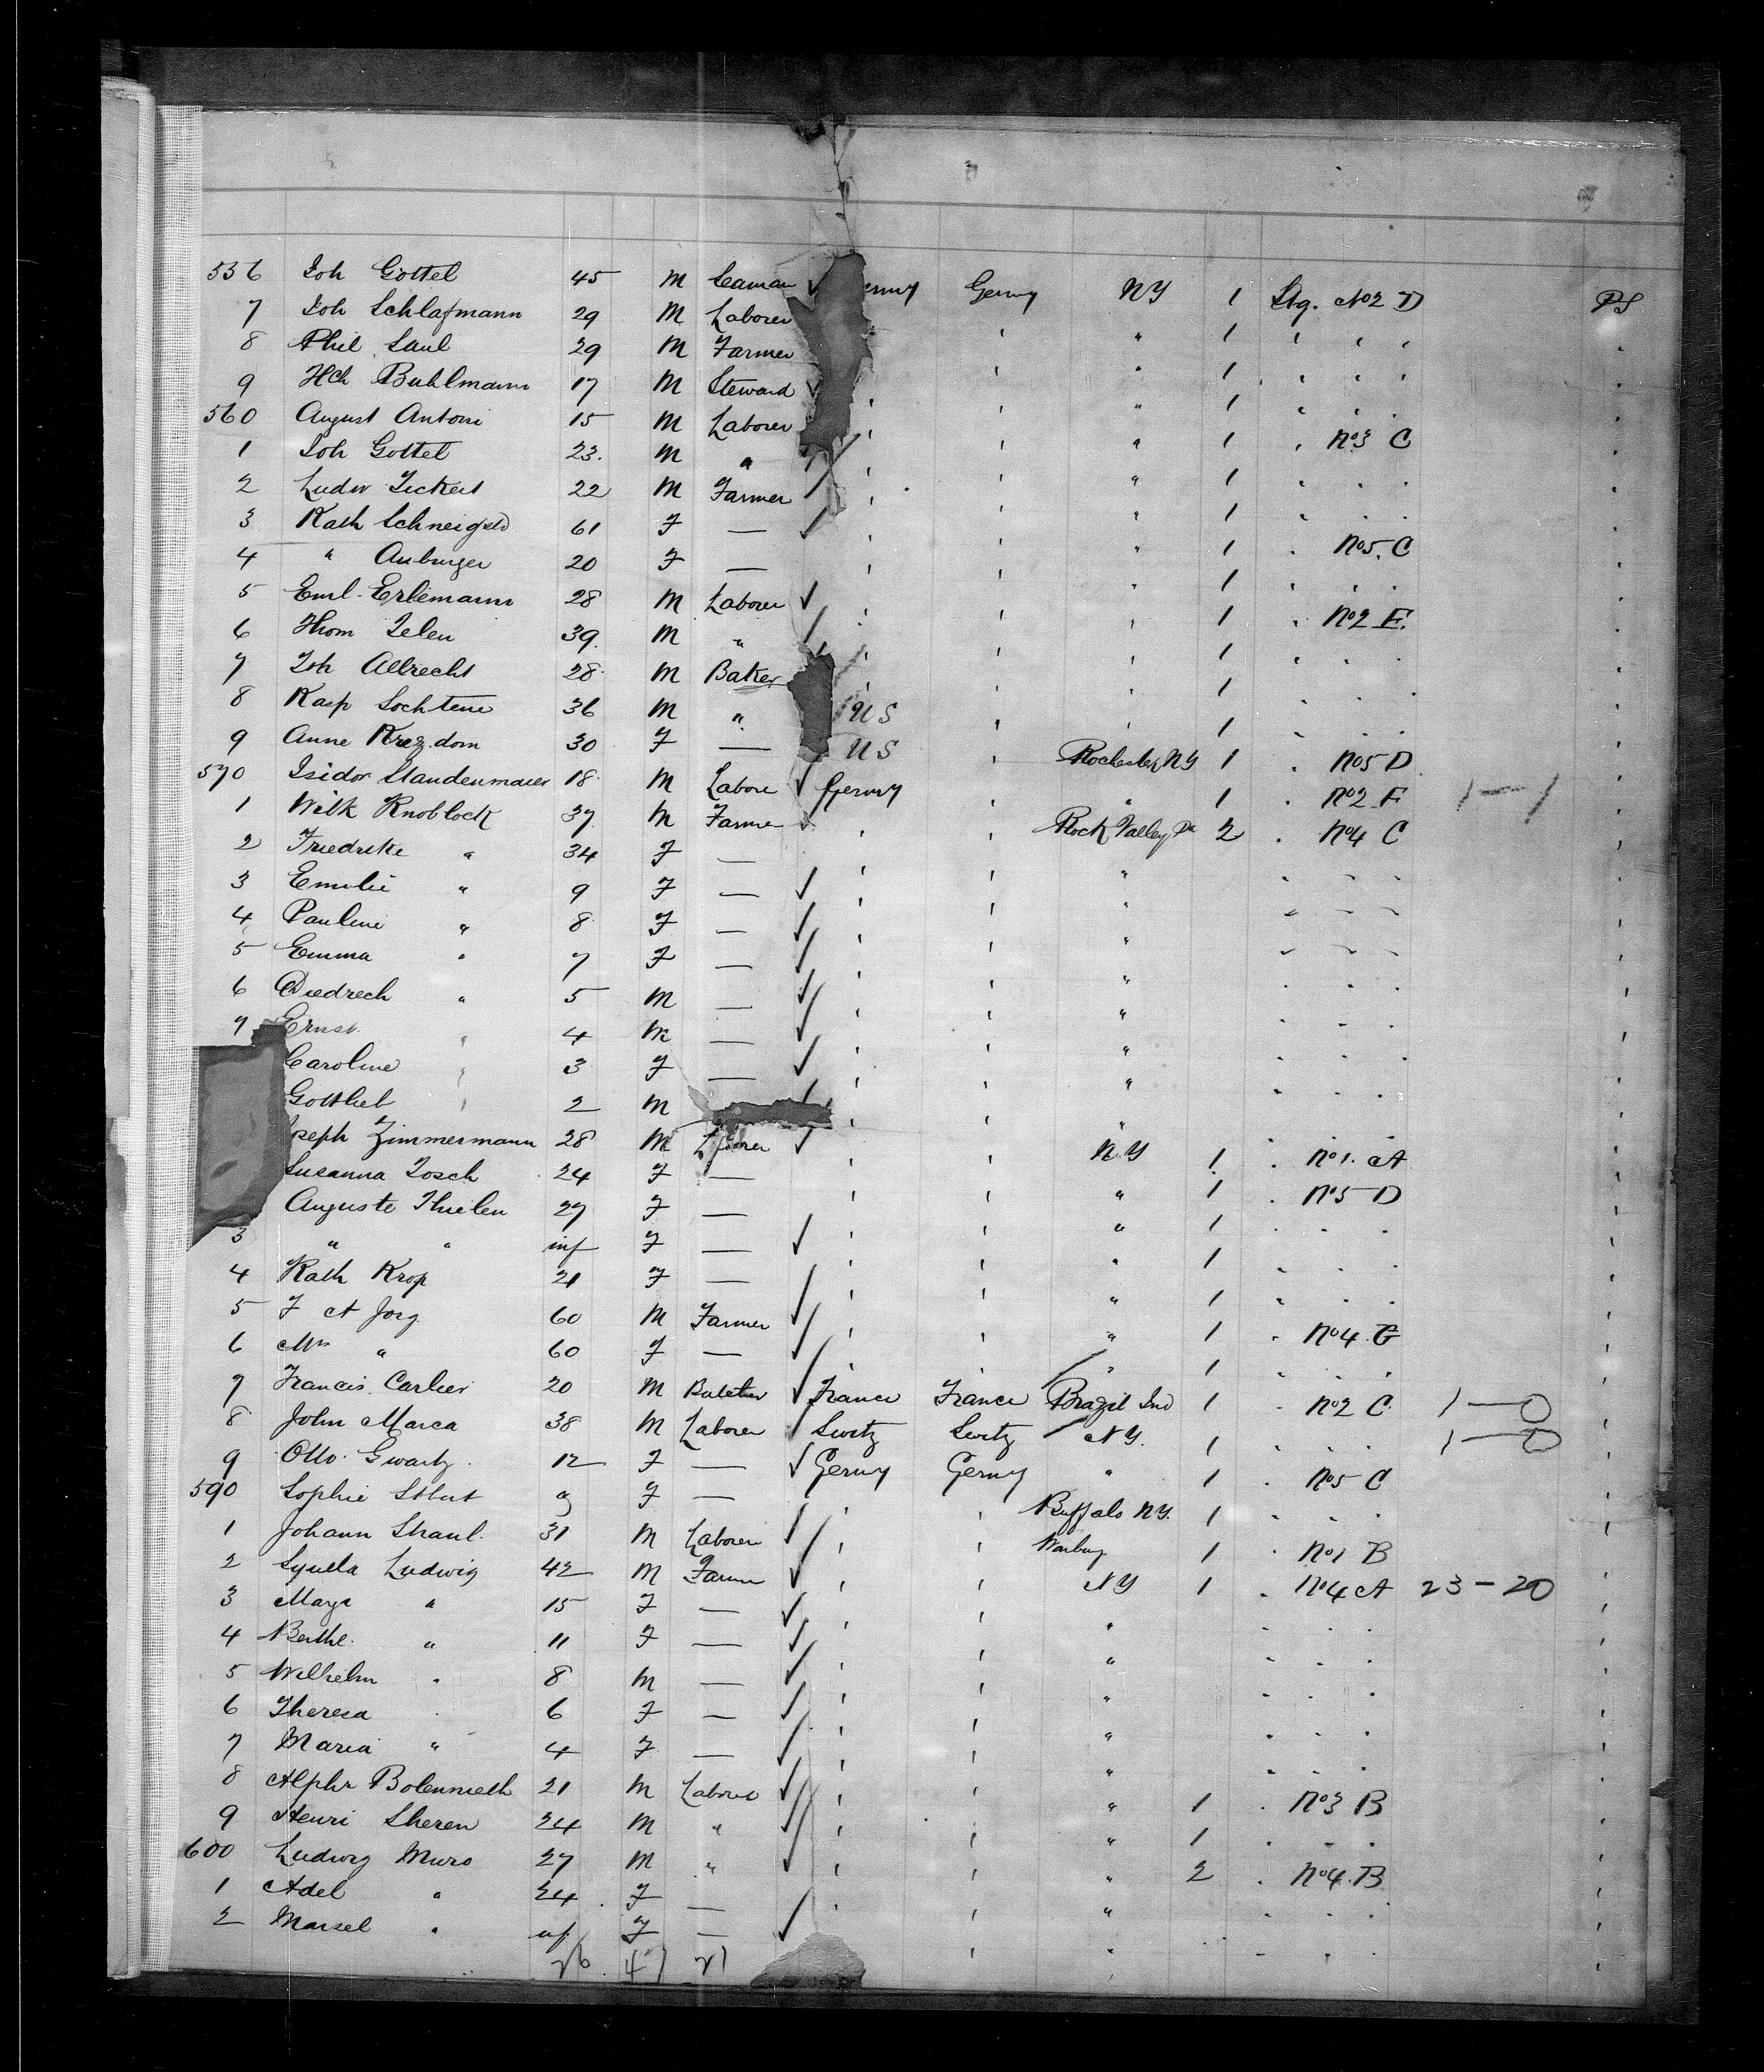 536 Joh Gottel 45 M Seaman Germy NY 1 Stg. No2 D PS
7 Joh Schlafmann 29 M Laborer " 1
8 Phil Saul 29 M Farmer " 1
9 Hch Buhlmann 17 M Steward " 1
560 August Antoni 15 M Laborer " 1 No3 C
1 Joh Gottel 23. M " " 1
2 Ludw 22 M Farmer " 1
3 Kath 61 F — " 1 No5. C
4 " Auburger 20 F — " 1
5 Eml. Erlemann 28 M Laborer " 1 No2 E.
6 Thom 39. M " " 1
7 Joh Albrecht 28 M Baker " 1
8 Kasp 36 M " US " 1
9 Anne 30 F — US Rochester NY 1 No5 D
570 Isidor Staudenmaier 18 M Labore Germy " 1 No2 F 1—1
1 Wilh Knoblock 37 M Farmer Rock Valley Pa 2 No4 C
2 Friedrike " 34 F — "
3 Emilie " 9 F — "
4 Pauline " 8 F — "
5 Emma " 7 F — "
6 Diedrech " 5 M — "
7 Ernst " 4 M — "
Caroline " 3 F — "
Gottlieb " 2 M "
oseph Zimmermann 28 M Laborer N.Y 1 No1. A
Susanna Tosch 24 F — " 1 No5 D
Auguste Thielen 27 F — " 1
3 " " inf F — " 1
4 Kath Krop 21 F — " 1
5 F A Jorg 60 M Farmer " 1 No4 G
6 Mrs " 60 F — " 1
7 Francis Carlier 20 M Butcher France France Brazil Ind 1 No2 C. 1—0
8 John Marca 38 M Laborer Switz Switz N.Y. 1 1—0
9 Otto Gwartz 12 F — Germy Germy " 1 No5 C
590 Sophie 9 F — Buffalo N.Y. 1
1 Johann Straul. 31 M Laborer 1 No1 B
2 Ludwig 42 M Farmer NY 1 No4 A 23—20
3 Marga " 15 F — "
4 Berthe. " 11 F — "
5 Wilhelm " 8 M — "
6 Theresa " 6 F — "
7 Maria " 4 F — "
8 Alphr 21 M Laborer " 1 No3 B
9 Henri Sheren 24 M " " 1
600 Ludwig Muro 27 M " " 2 No4. B
1 Adel " 24 F — "
2 Marsel " inf F — "
26 47 21